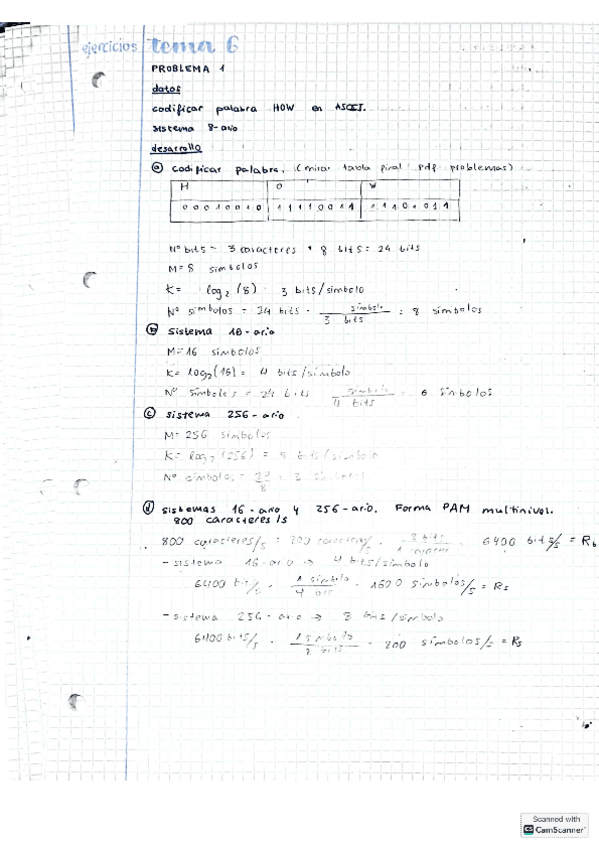 ejercicios tema 6
PROBLEMA 1
datos
codificar palabra HOW en ASCII.
sistema 8-ario
desarrollo
a codificar palabra. (mirar tabla final pdf problemas)
H O W
0 0 0 1 0 0 1 0 1 1 1 1 0 0 1 1 1 1 1 0 1 0 1 1
Nº bits = 3 caracteres · 8 bits = 24 bits
M = 8 simbolos
K = log2 (8) = 3 bits/símbolo
Nº símbolos = 24 bits · símbolo / 3 bits = 8 símbolos
b Sistema 16-ario
M=16 símbolos
K= log2(16) = 4 bits/símbolo
Nº símbolos = 24 bits símbolo / 4 bits = 6 símbolos
c sistema 256-ario
M=256 símbolos
K= log2 (256) = 8 bits/símbolo
Nº símbolos = 24 / 8 = 3
d sistemas 16-ario y 256-ario. Forma PAM multinivel.
800 caracteres/s
800 caracteres/s = 800 caracteres/s · 8 bits / 1 caracter = 6400 bits/s = Rb
- sistema 16-ario → 4 bits/símbolo
6400 bits/s · 1 símbolo / 4 bits = 1600 símbolos/s = Rs
- sistema 256-ario → 8 bits/símbolo
6400 bits/s · 1 símbolo / 8 bits = 800 símbolos/s = Rs
Scanned with
CS CamScanner